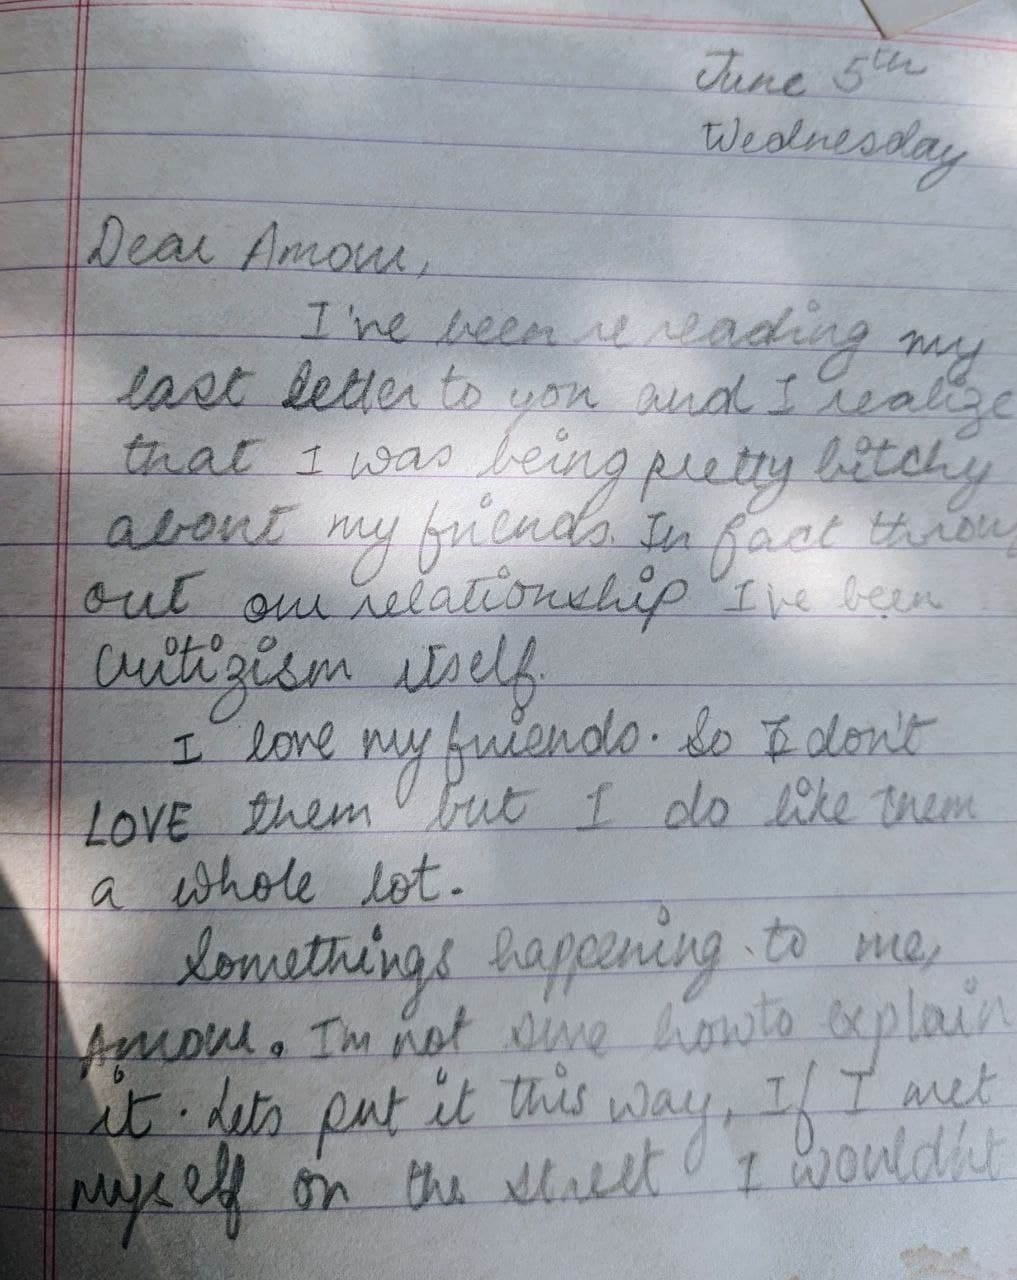 June 5th
Wednesday
Dear Amour,
I've been rereading my
last letter to you and I realize
that I was being pretty bitchy
about my friends. In fact throu
out our relationship I've been
critizism itself.
I love my friends. So I don't
LOVE them but I do like them
a whole lot.
Somethings happening to me,
Amour. I'm not sure how to explain
it. Lets put it this way, If I met
myself on the street I wouldn't